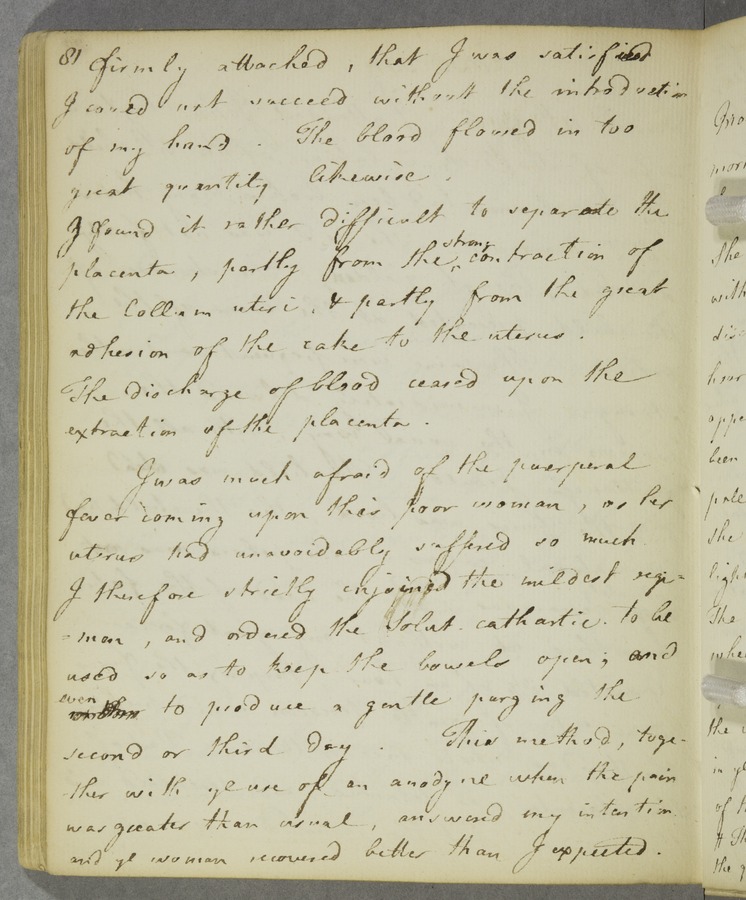 81 firmly attached, that I was satisfied
I coued not succeed without the introduction
of my hand. The blood flowed in too
great quantity likewise.
I found it rather difficult to separate the
placenta, partly from the strong contraction of
the Collum uteri, & partly from the great
adhesion of the cake to the uterus.
The discharge of blood ceased upon the
extraction of the placenta.
I was much afraid of the puerperal
fever coming upon this poor woman, as her
uterus had unavoidably suffered so much
I therefore strictly enjoined the mildest regi=
=men, and ordered the Solut. cathartic. to be
used so as to keep the bowels open; and
even to produce a gentle purging the
second or third day. This method, toge-
-ther with ye use of an anodyne when the pain
was greater than usual, answered my intention
and ye woman recovered better than I expected.